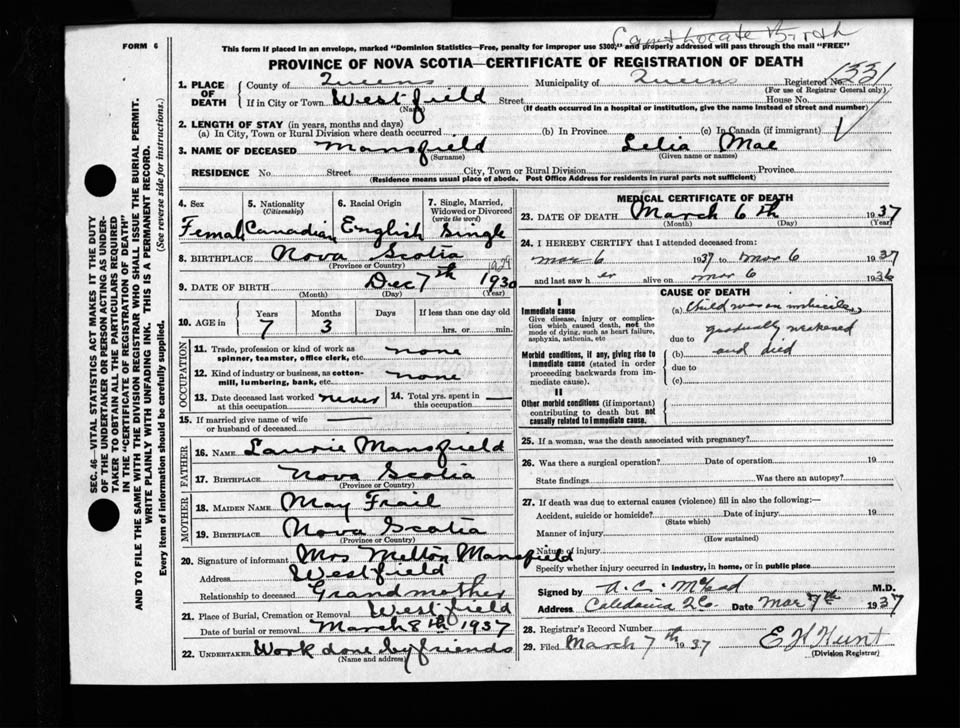 FORM 6
This form if placed in an envelope, marked "Dominion Statistics—Free, penalty for improper use $300," and properly addressed will pass through the mail "FREE"
PROVINCE OF NOVA SCOTIA—CERTIFICATE OF REGISTRATION OF DEATH
1. PLACE OF DEATH County of Queens Municipality of Queens Registered No. 1331
(For use of Registrar General only)
If in City or Town Westfield Street House No.
(Name) (If death occurred in a hospital or institution, give the name instead of street and number)
2. LENGTH OF STAY (in years, months and days)
(a) In City, Town or Rural Division where death occurred (b) In Province (c) In Canada (if immigrant)
3. NAME OF DECEASED Mansfield Lelia Mae
(Surname) (Given name or names)
RESIDENCE No. Street City, Town or Rural Division Province
(Residence means usual place of abode. Post Office Address for residents in rural parts not sufficient)
4. Sex 5. Nationality (Citizenship) 6. Racial Origin 7. Single, Married, Widowed or Divorced (write the word)
Female Canadian English Single
8. BIRTHPLACE Nova Scotia
(Province or Country)
1929
9. DATE OF BIRTH Dec 7th 1930
(Month) (Day) (Year)
10. AGE in Years Months Days If less than one day old
7 3 hrs. or min.
OCCUPATION
11. Trade, profession or kind of work as spinner, teamster, office clerk, etc. none
12. Kind of industry or business, as cotton-mill, lumbering, bank, etc. none
13. Date deceased last worked at this occupation never 14. Total yrs. spent in this occupation —
15. If married give name of wife or husband of deceased —
FATHER
16. NAME Laurie Mansfield
17. BIRTHPLACE Nova Scotia
(Province or Country)
MOTHER
18. MAIDEN NAME May Frail
19. BIRTHPLACE Nova Scotia
(Province or Country)
20. Signature of informant Mrs Melton Mansfield
Address Westfield
Relationship to deceased Grandmother
21. Place of Burial, Cremation or Removal Westfield
Date of burial or removal March 8th 1937
22. UNDERTAKER Work done by friends
(Name and address)
MEDICAL CERTIFICATE OF DEATH
23. DATE OF DEATH March 6th 1937
(Month) (Day) (Year)
24. I HEREBY CERTIFY that I attended deceased from:
Mar 6 1937 to Mar 6 1937
and last saw h er alive on Mar 6 1936
CAUSE OF DEATH
I
Immediate cause
Give disease, injury or complication which caused death, not the mode of dying, such as heart failure, asphyxia, asthenia, etc
Morbid conditions, if any, giving rise to immediate cause (stated in order proceeding backwards from immediate cause).
II
Other morbid conditions (if important) contributing to death but not causally related to immediate cause.
(a) Child was an imbecile,
due to gradually weakened
(b) and died
due to
(c)
25. If a woman, was the death associated with pregnancy?
26. Was there a surgical operation? Date of operation 19
State findings Was there an autopsy?
27. If death was due to external causes (violence) fill in also the following:—
Accident, suicide or homicide? Date of injury 19
(State which)
Manner of injury
(How sustained)
Nature of injury
Specify whether injury occurred in industry, in home, or in public place
Signed by M.D.
Address Caledonia Q Co. Date Mar 7th 1937
28. Registrar's Record Number
29. Filed March 7th 1937 E K Hunt
(Division Registrar)
SEC. 46—VITAL STATISTICS ACT MAKES IT THE DUTY
OF THE UNDERTAKER OR PERSON ACTING AS UNDER-
TAKER TO OBTAIN ALL THE PARTICULARS REQUIRED
IN THE "CERTIFICATE OF REGISTRATION OF DEATH"
AND TO FILE THE SAME WITH THE DIVISION REGISTRAR WHO SHALL ISSUE THE BURIAL PERMIT.
WRITE PLAINLY WITH UNFADING INK. THIS IS A PERMANENT RECORD.
Every item of information should be carefully supplied. (See reverse side for instructions.)